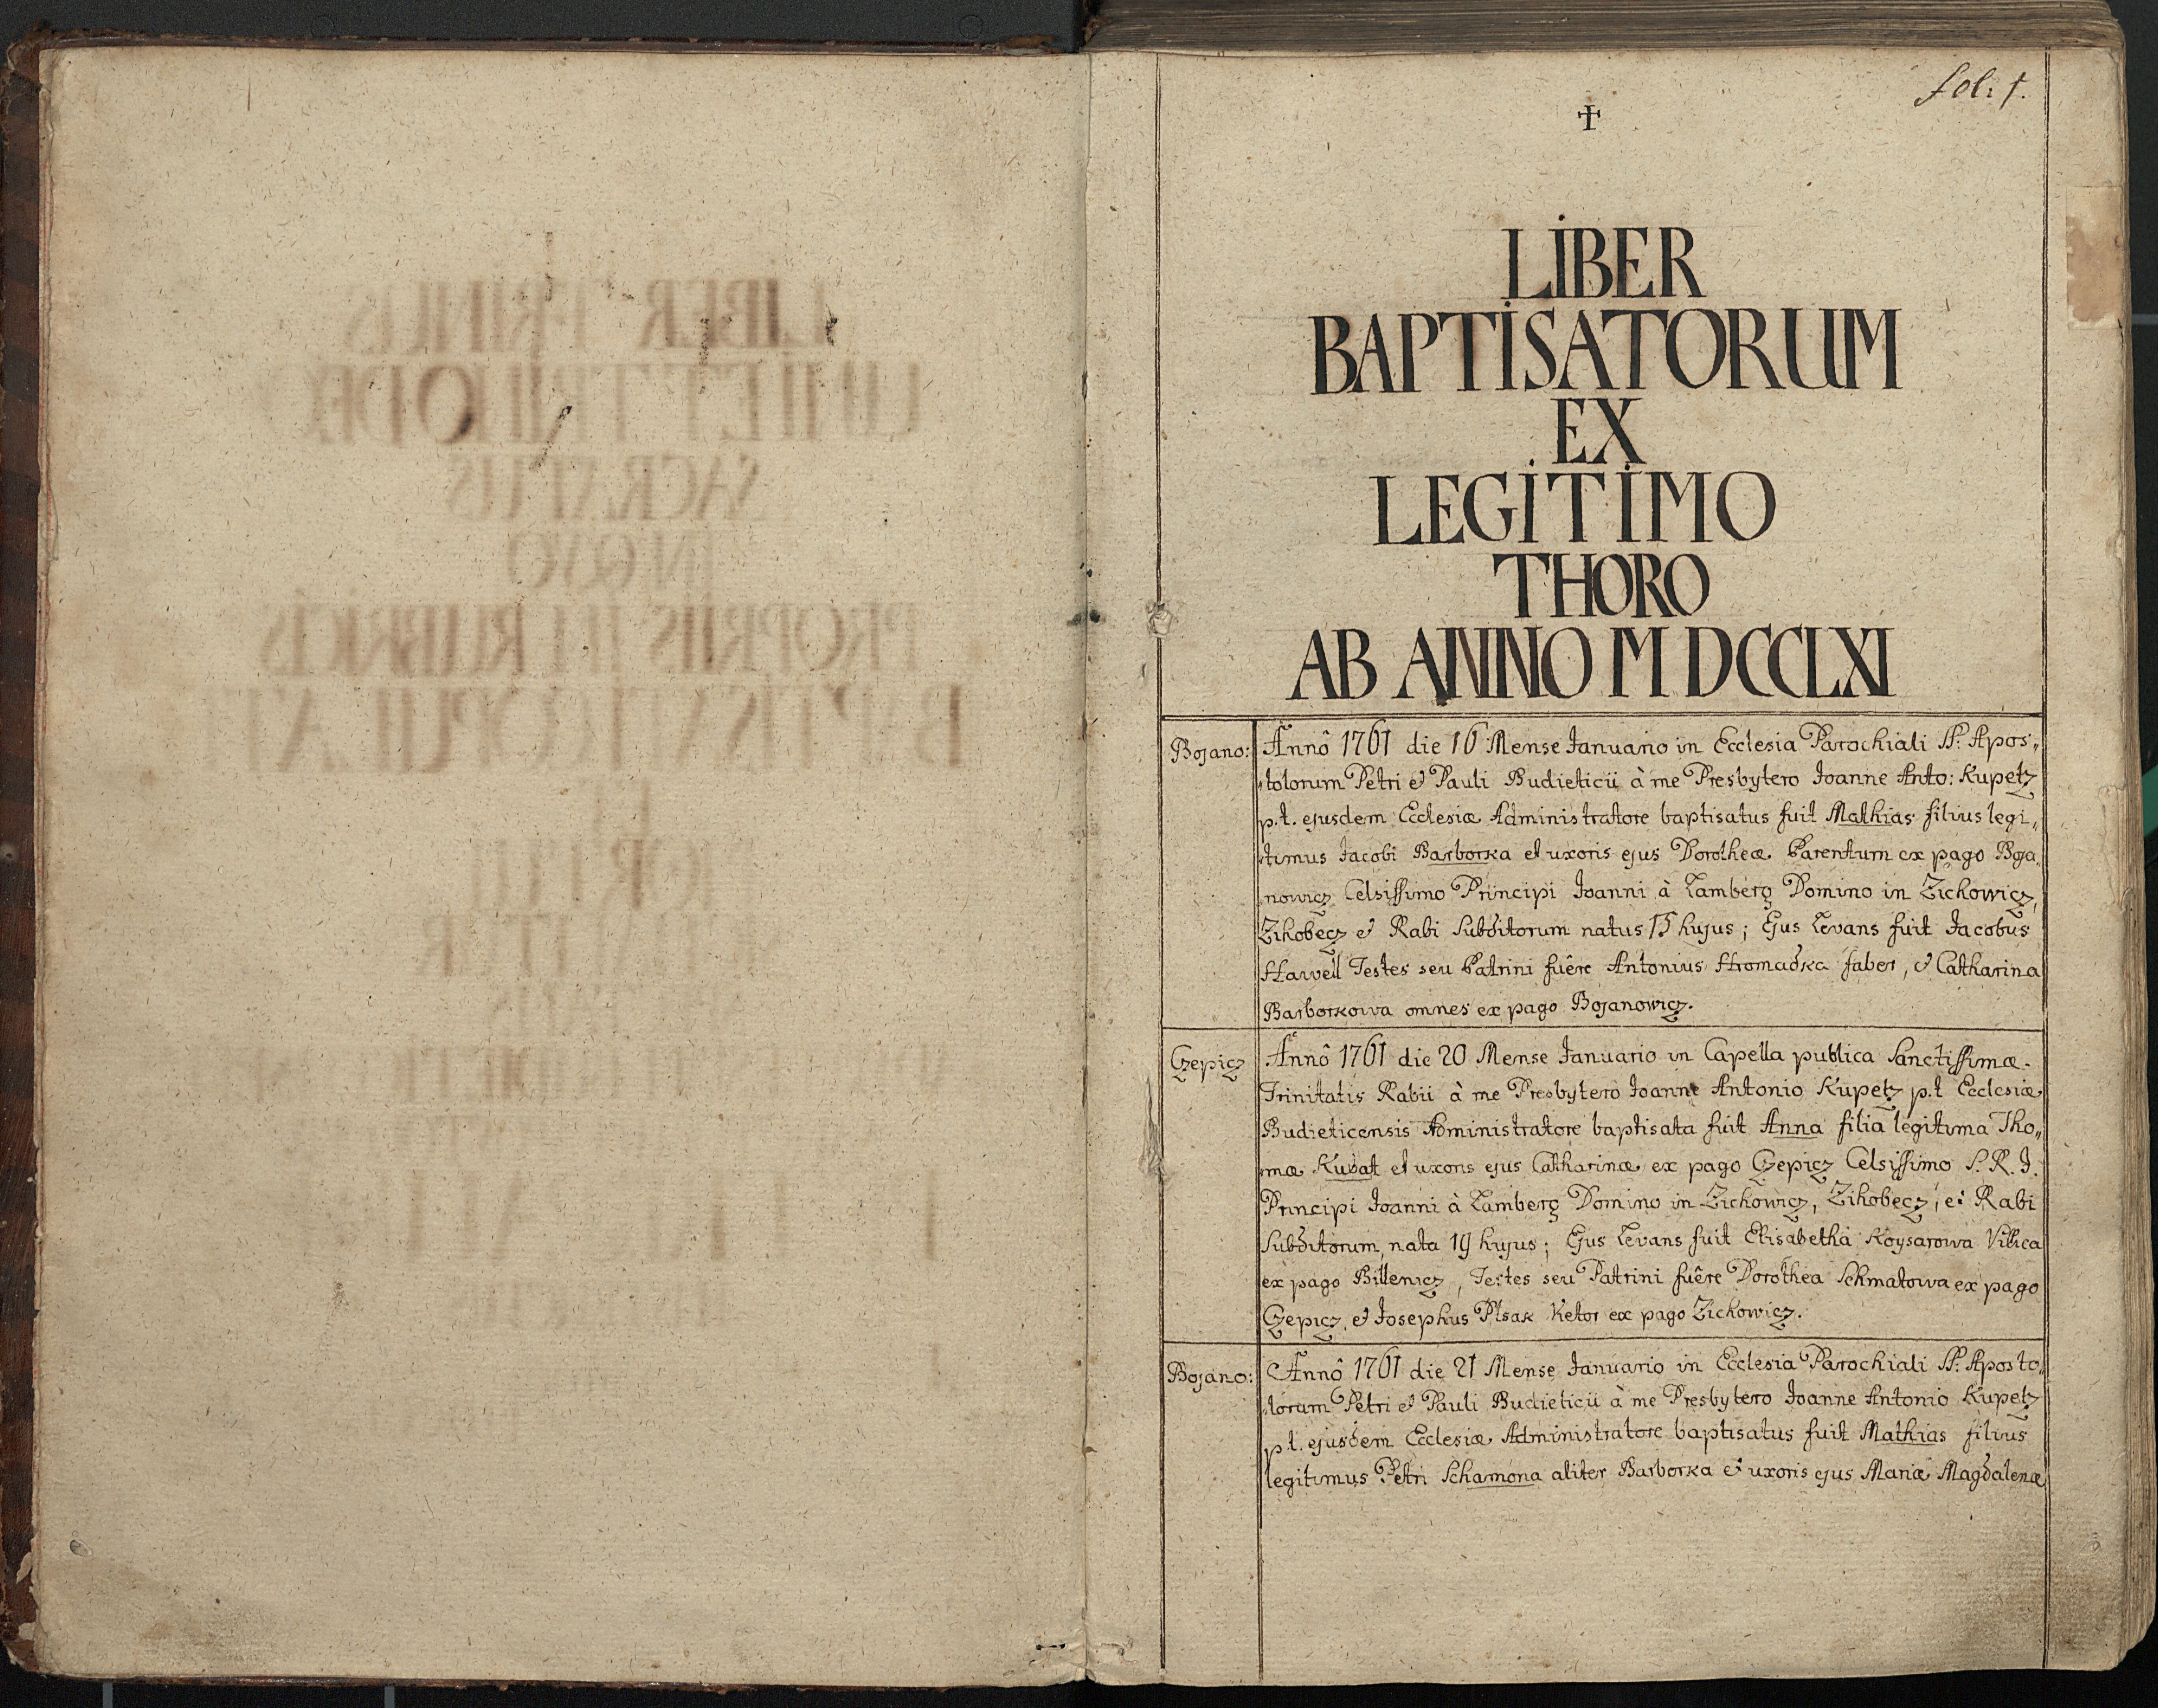 fol: 1.
LIBER
BAPTISATORUM
EX
LEGITIMO
THORO
AB ANNO MDCCLXI
Bojano:
Annô 1761 die 16 Mense Januario in Ecclesia Parochiali SS. Apos„
tolorum Petri et Pauli Budieticii à me Presbytero Joanne Anto: Kupetz
p.t. ejusdem Ecclesiæ Administratore baptisatus fuit Mathias filius legi„
timus Jacobi Barborka et uxoris ejus Dorotheæ Parentum ex pago Boja„
nowicz Celsissimo Principi Joanni à Lamberg Domino in Zichowicz,
Zihobecz et Rabi Subditorum natus 15 hujus; Ejus Levans fuit Jacobus
Hawell Testes seu Patrini fuêre Antonius Hromadka faber, et Catharina
Barborkowa omnes ex pago Bojanowicz.
Czepicz
Annô 1761 die 20 Mense Januario in Capella publica Sanctissimæ
Trinitatis Rabii à me Presbytero Joanne Antonio Kupetz p.t Ecclesiæ
Budieticensis Administratore baptisata fuit Anna filia legitima Tho„
mæ Kubat et uxoris ejus Catharinæ ex pago Czepicz Celsissimo S. R. I.
Principi Joanni à Lamberg Domino in Zichowicz, Zihobecz, et Rabi
Subditorum, nata 19 hujus; Ejus Levans fuit Elisabetha Koysarowa Villica
ex pago Billenicz, Testes seu Patrini fuêre Dorothea Schmatowa ex pago
Czepicz, et Josephus Plsak Ketor ex pago Zichowicz.
Bojano:
Annô 1761 die 21 Mense Januario in Ecclesia Parochiali SS. Aposto„
lorum Petri et Pauli Budieticii à me Presbytero Joanne Antonio Kupetz
p.t. ejusdem Ecclesiæ Administratore baptisatus fuit Mathias filius
legitimus Petri Schamona aliter Barborka et uxoris ejus Mariæ Magdalenæ